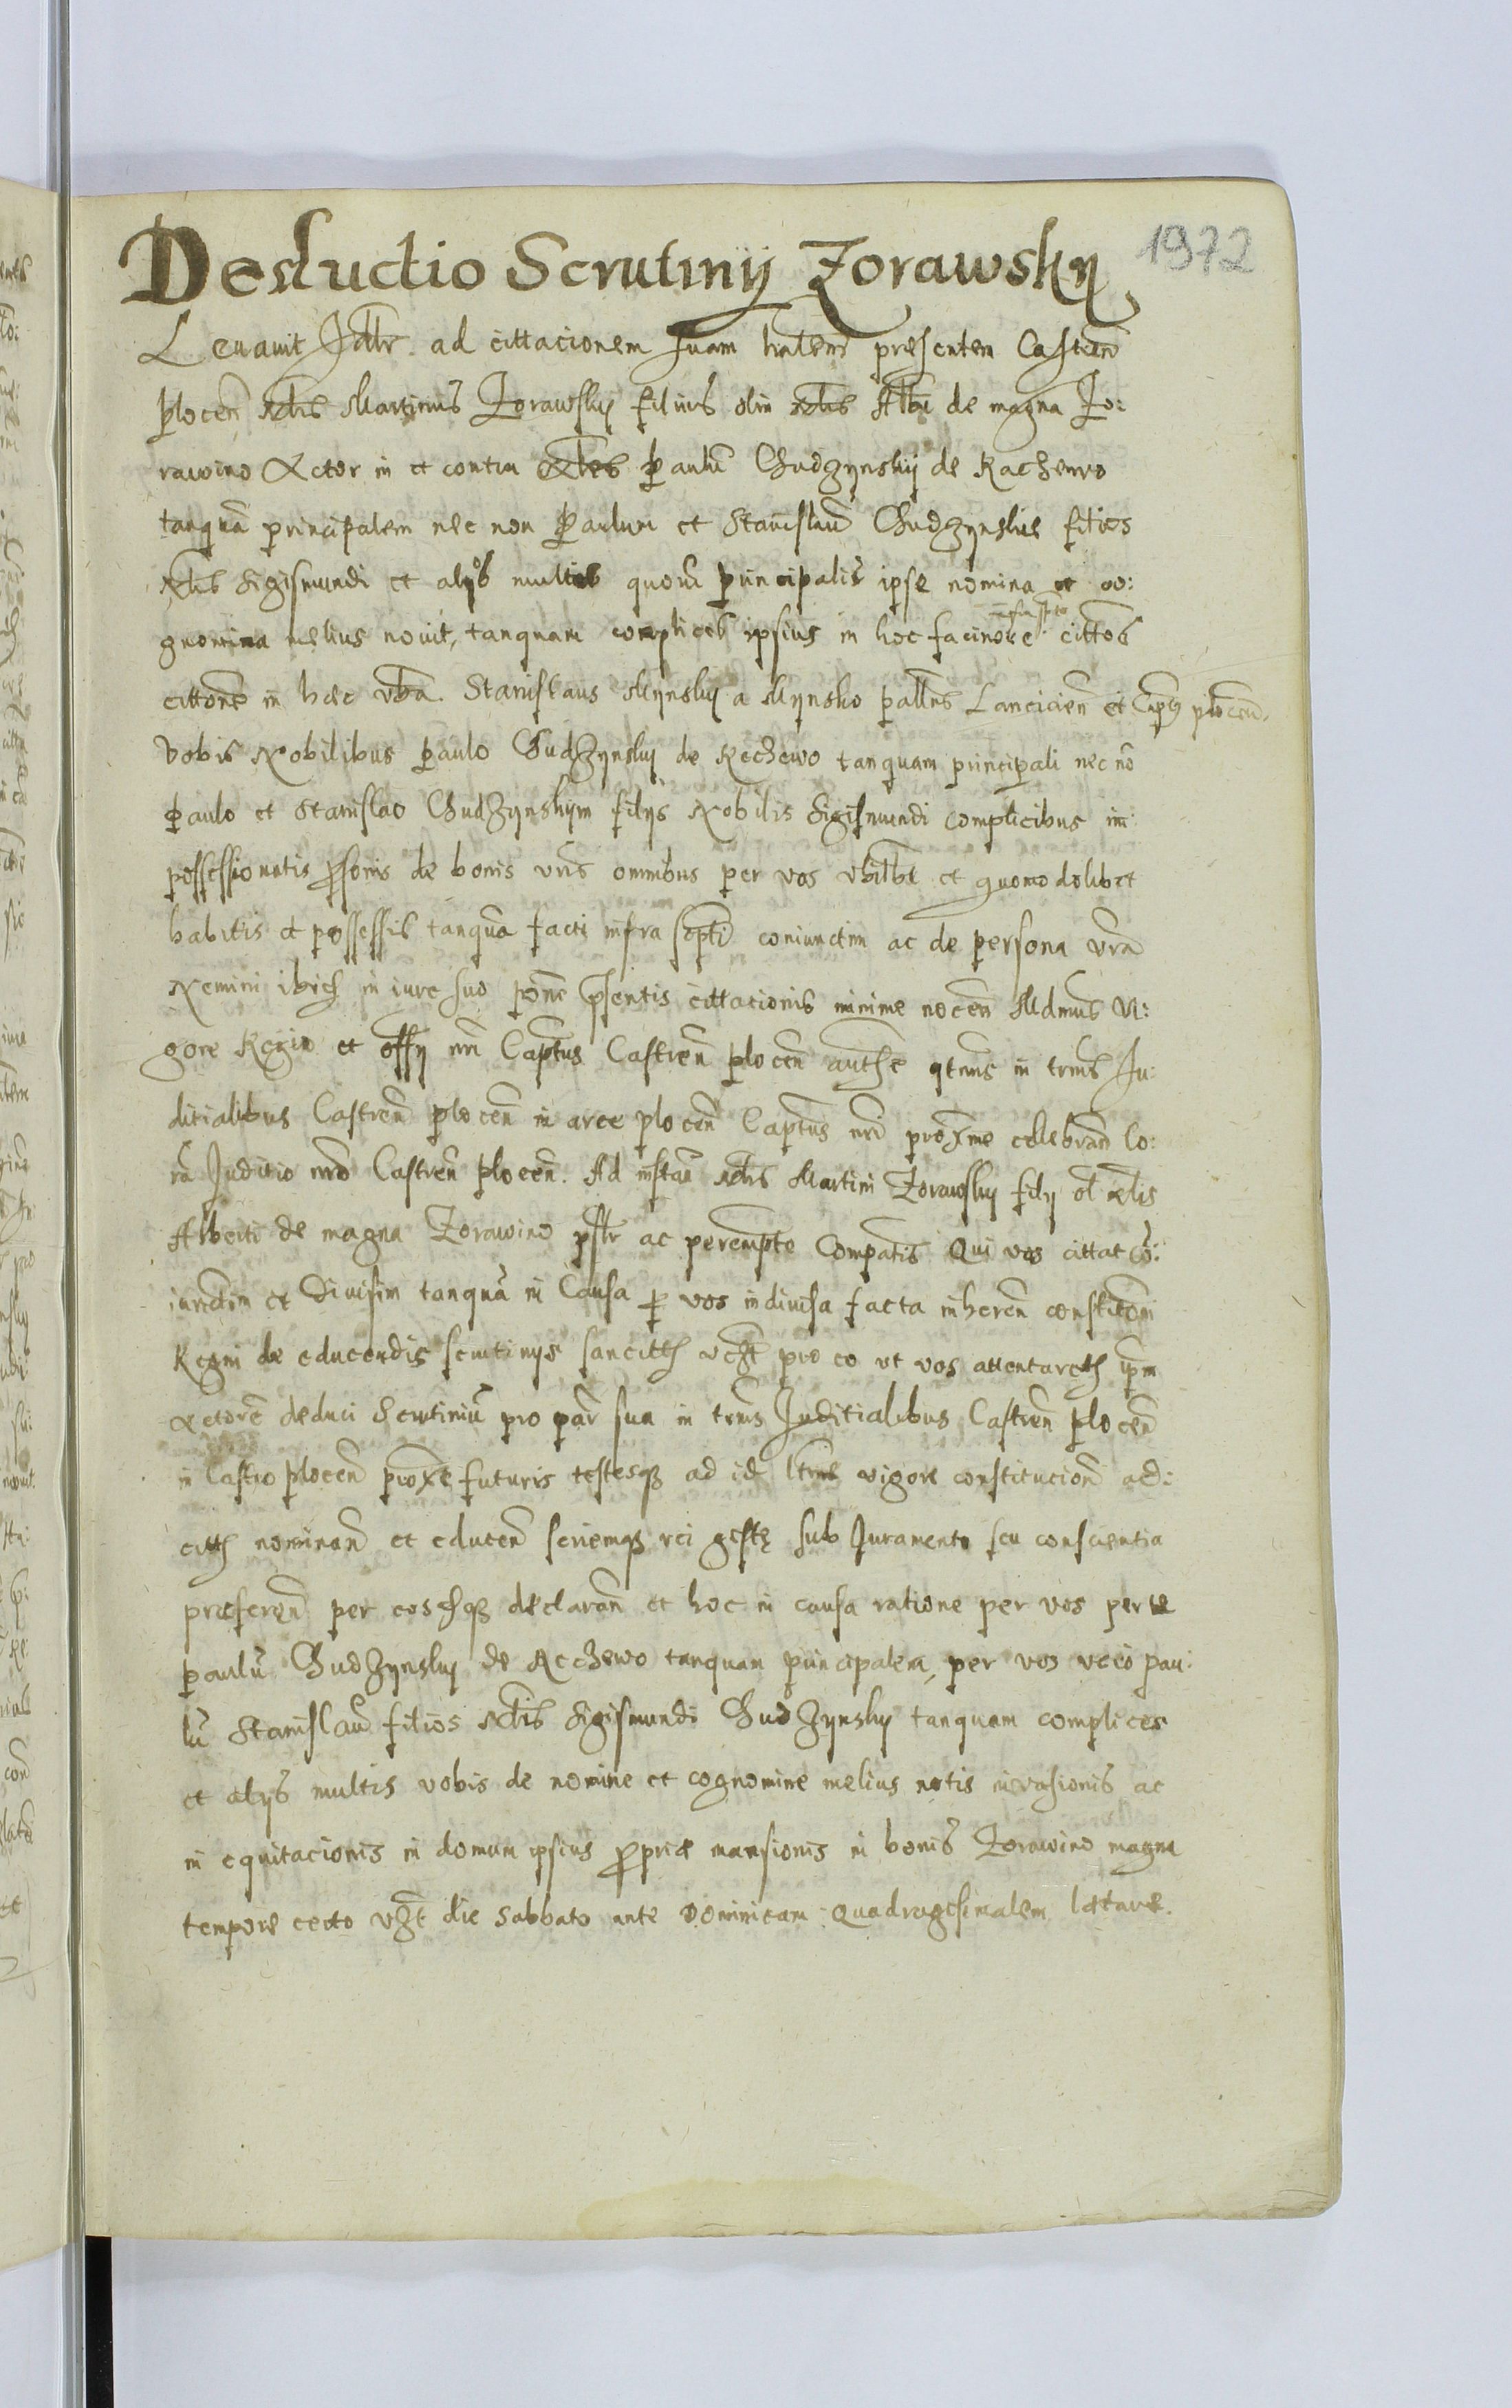 Deductio Scrutinij Zorawskij 1972
Leuauit Idtr ad cittacionem suam haben praesentem Castren
plocen Nobis Martinus Zorawskij filius olim Nobis Albti de magna Zo:
rawino Actor in et contra Nobles Paulu Chudzynskij de Rachewo
tanqua principalem nec non Paulum et Stanislau Chudzynskie filios
Nobis Sigismundi et alys multos quoru principalis ipse nomina et co:
gnomina melius nouit, tanquam complices ipsius in hoc facinore infra scto cittos
cittone in haec vba. Stanislaus Mynskij a Mynsko pallns Lancicien et Capts plocen.
Vobis Nobilibus paulo Chudzynskij de Rechewo tanquam principali nec no
paulo et Stanislao Chudzynskym filijs Nobilis Sigismundi complicibus im:
possessionatis psonis de bonis vris omnibus per vos vbilbt et quomodolibet
habitis et possessis tanqua facti infra scpti coniunctim ac de persona vra
Nemini ibidem in iure suo pone psentis cittacionis minime nocen Mdmus Vi:
gore Regio et offy nri Captus Castren plocen authe qtenus in trmis Ju:
ditialibus Castren plocen in arce plocen Captus nri proxime celebran Co:
ra Juditio nro Castren plocen. Ad instan Nobis Martini Zorawskij filij ol Nobilis
Alberti de magna Zorawino psltr ac perempte Compatis Qui vos cittat co:
iunctim et Diuisim tanqua in Causa p vos indiuisa facta inheren constitoni
Regni de educendis scrutinijs sancitt vzt pro eo vt vos attentaretis ipm
Actore deduci Scrutiniu pro par sua in trmis Juditialibus Castren plocen
in Castro plocen proxe futuris testesq ad id ltme vigore constitucion ad:
citt nominan et educen seriemq rei gestę sub Juramento seu conscientia
praeferen per eosdq declaran et hoc in causa ratione per vos per te
paulu Chudzynskij de Rechewo tanquam principalem, per vos vero pau:
lu Stanislau filios Nobis Sigismundi Chudzynskij tanquam complices
et alys multis vobis de nomine et cognomine melius notis invasionis ac
in equitacionis in domum ipsius propriae mansionis in bonis Zorawino magna
tempore certo vzt die Sabbato ante Dominicam Quadragesimalem laetare.